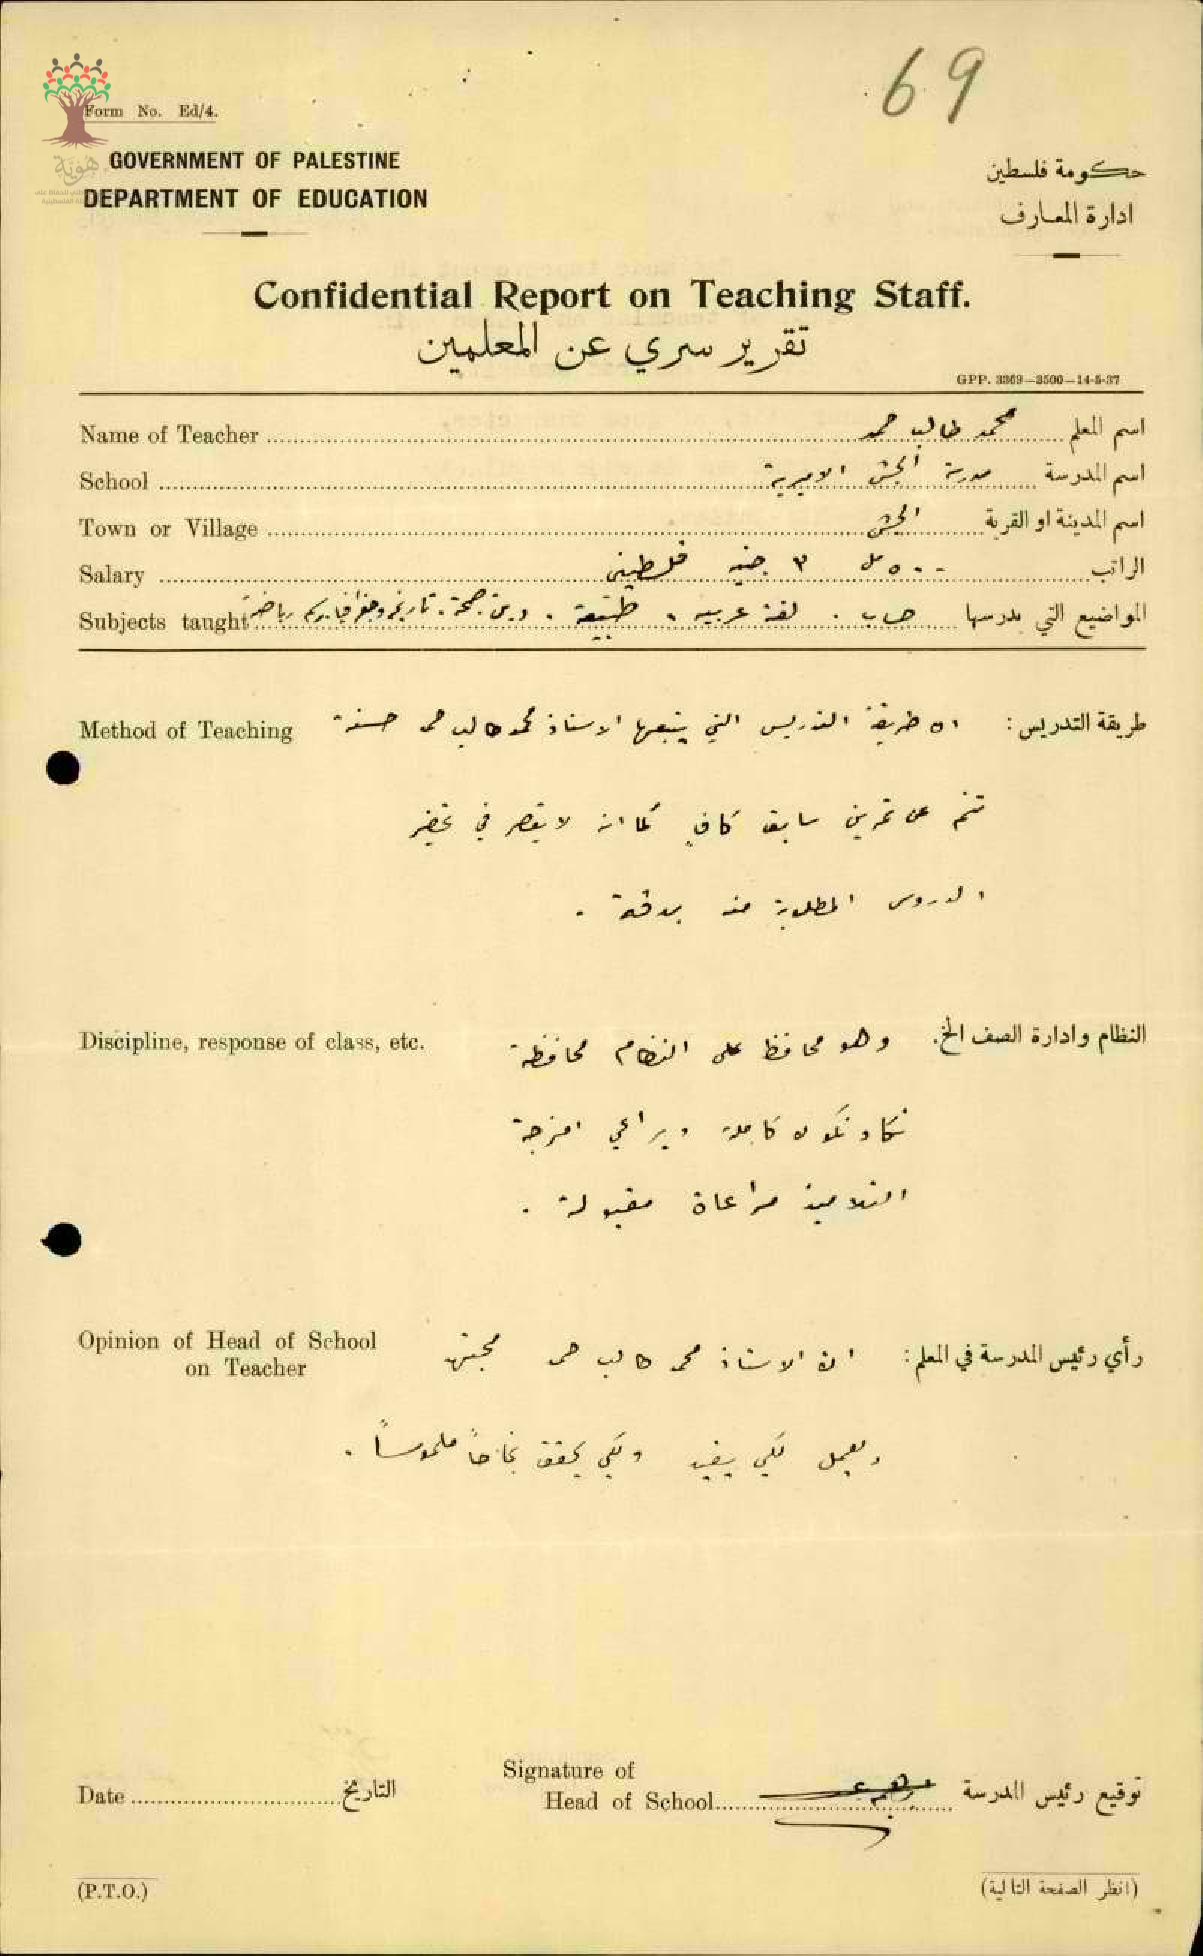 69
Form No. Ed/4.
هوية
GOVERNMENT OF PALESTINE
DEPARTMENT OF EDUCATION
حكومة فلسطين
ادارة المعارف
Confidential Report on Teaching Staff.
تقرير سري عن المعلمين
GPP. 3369—3500—14-5-37
Name of Teacher محمد طالب حمد اسم المعلم
School مدرسة الجش الاميرية اسم المدرسة
Town or Village الجش اسم المدينة او القرية
Salary ٥٠٠ مل ٣ جنيه فلسطيني الراتب
Subjects taught حساب . لغة عربيه . طبيعة . دين . صحة . تاريخ وجغرافيا رياضة المواضيع التي يدرسها
Method of Teaching ان طريقة التدريس التي يتبعها الاستاذ محمد طالب حمد حسنة طريقة التدريس:
تنم عن تمرين سابق كافٍ كما انه لا يقصر في تحضير
الدروس المطلوبة منه بدقة .
Discipline, response of class, etc. وهو محافظ على النظام محافظة النظام وادارة الصف الخ.
تكاد تكون كاملة ويراعي امزجة
التلاميذ مراعاة مقبولة .
Opinion of Head of School
on Teacher
ان الاستاذ محمد طالب حمد مجتهد رأي رئيس المدرسة في المعلم:
ويعمل لكي يفيد ولكي يحقق نجاحاً ملموساً .
Signature of
Head of School توقيع رئيس المدرسة
Date التاريخ
(P.T.O.)
(انظر الصفحة التالية)